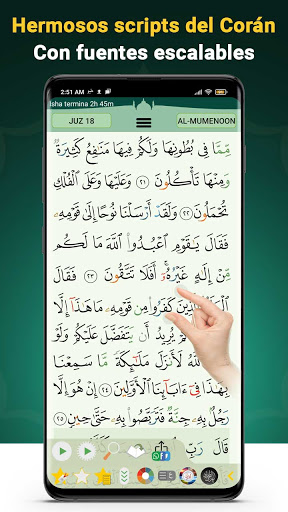 Hermosos scripts del Corán
Con fuentes escalables
2:51 AM
Isha termina 2h 45m
JUZ 18
AL-MUMENOON
مِّمَّا فِي بُطُونِهَا وَلَكُمْ فِيهَا مَنَافِعُ كَثِيرَةٌ
وَمِنْهَا تَأْكُلُونَ ٢١ وَعَلَيْهَا وَعَلَى الْفُلْكِ
تُحْمَلُونَ ٢٢ وَلَقَدْ أَرْسَلْنَا نُوحًا إِلَىٰ قَوْمِهِ
فَقَالَ يَٰقَوْمِ اعْبُدُوا اللَّهَ مَا لَكُم
مِّنْ إِلَٰهٍ غَيْرُهُ أَفَلَا تَتَّقُونَ ٢٣ فَقَالَ
الَّذِينَ كَفَرُوا مِن قَوْمِهِ مَا هَٰذَا إِلَّا
يُرِيدُ أَن يَتَفَضَّلَ عَلَيْكُمْ وَلَوْ
لَأَنزَلَ مَلَٰئِكَةً مَّا سَمِعْنَا
بِهَٰذَا فِي ءَابَائِنَا الْأَوَّلِينَ ٢٤ إِنْ هُوَ إِلَّا
رَجُلٌ بِهِ جِنَّةٌ فَتَرَبَّصُوا بِهِ حَتَّىٰ حِينٍ ٢٥
قَالَ رَبِّ